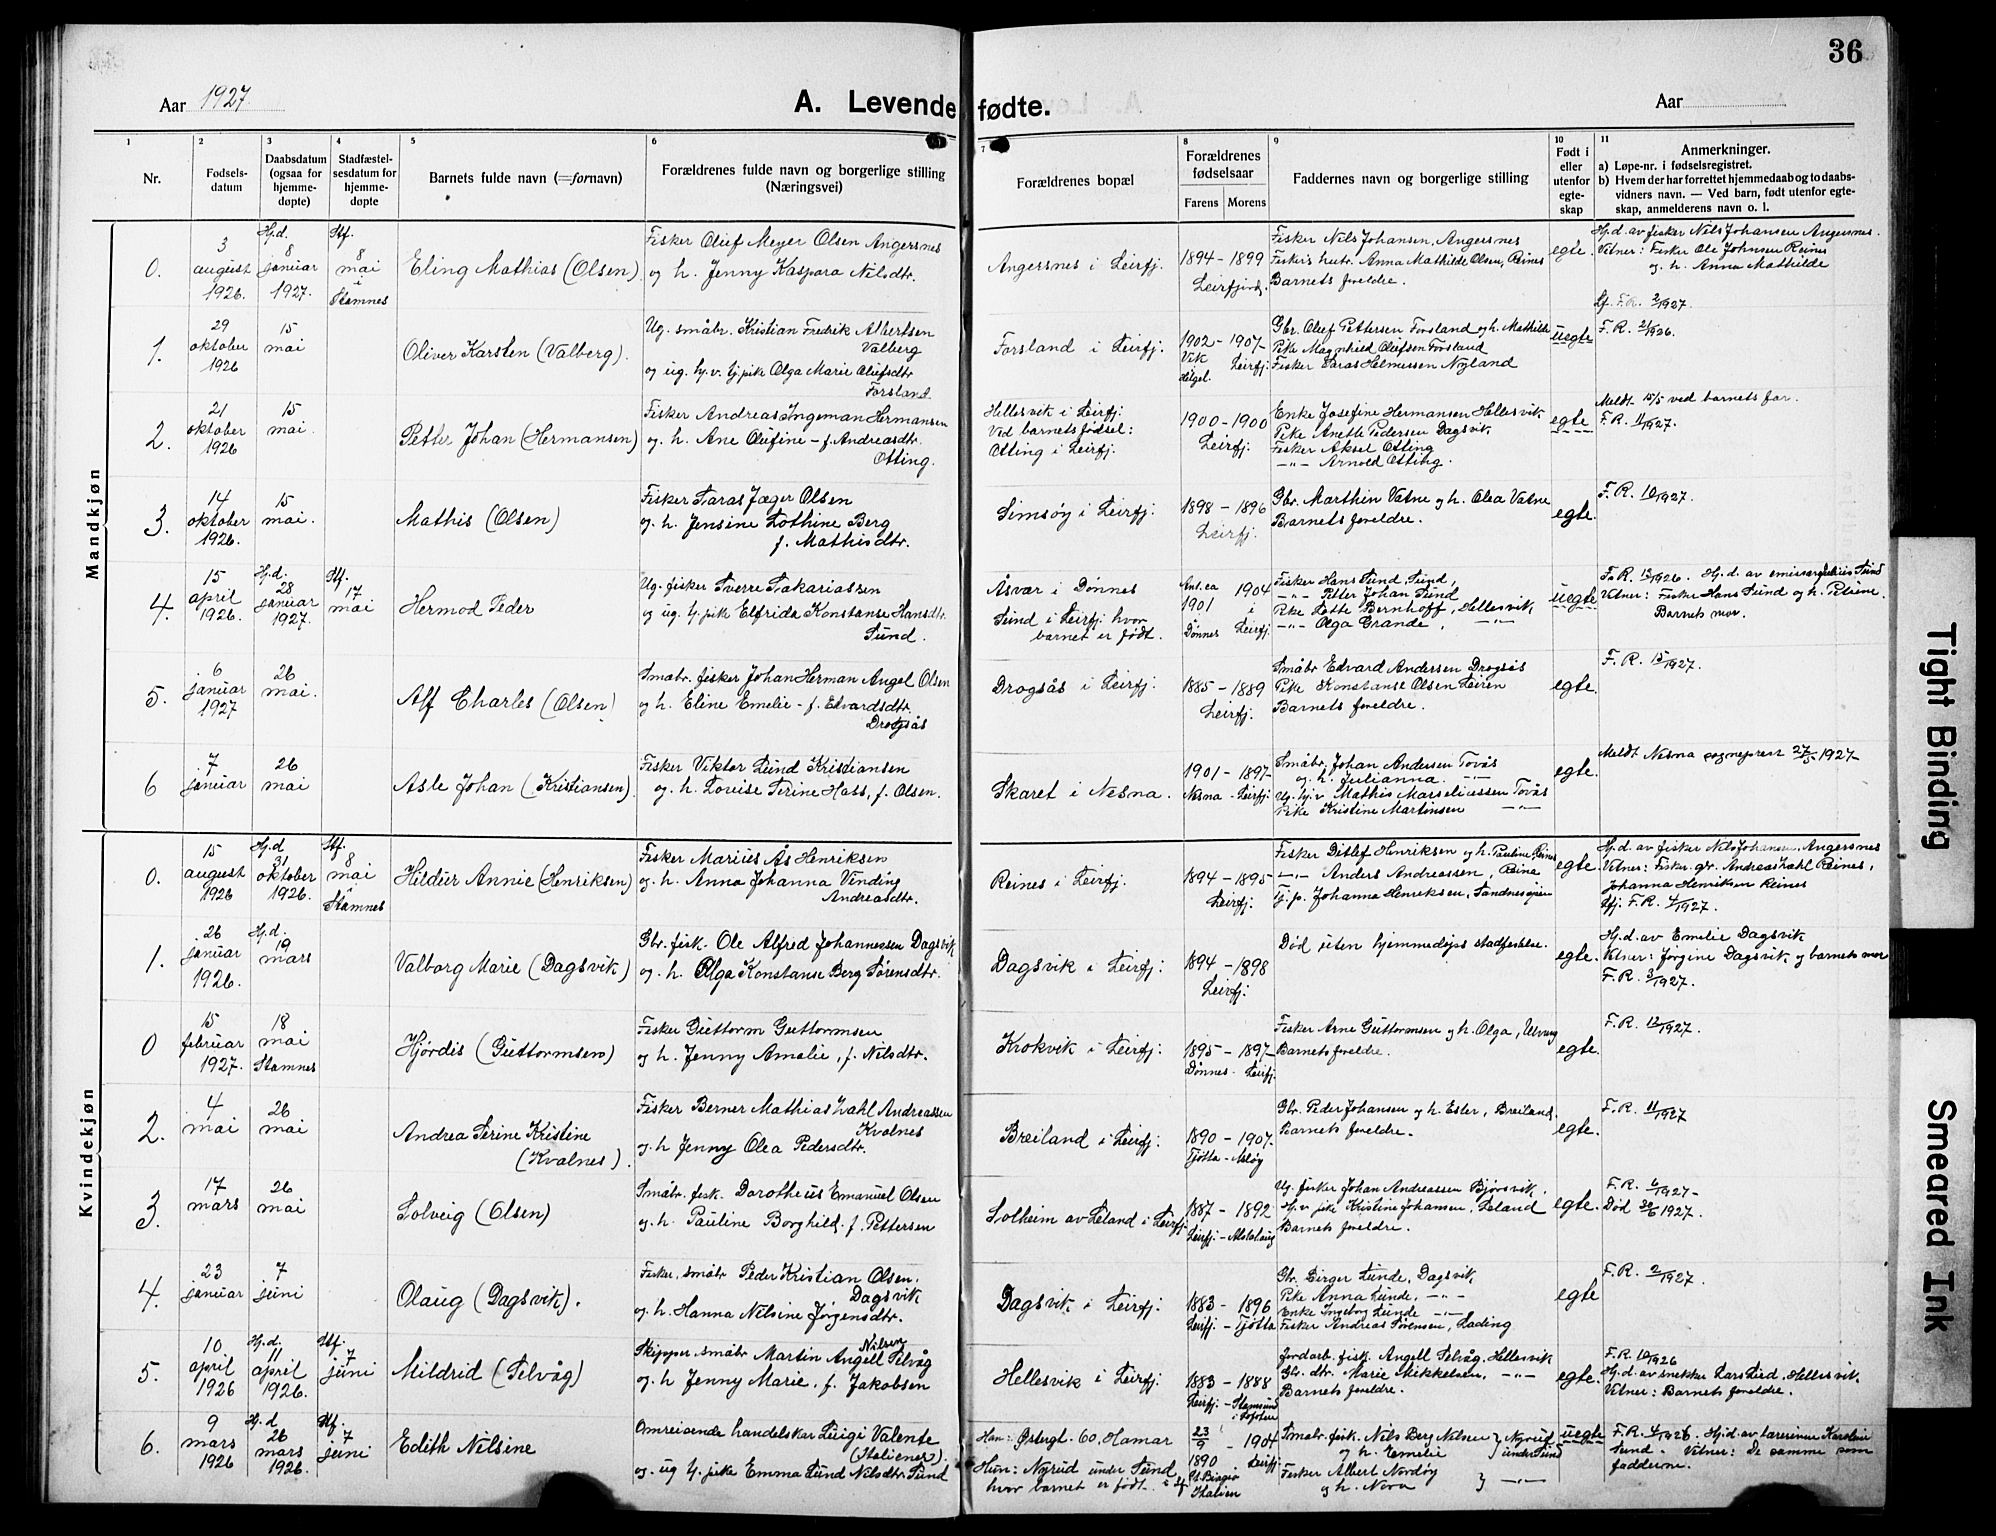 36
Aar 1927
A. Levende fødte.
Aar
1 2 3 4 5 6 7 8 9 10 11
Nr.
Fødsels-
datum
Daabsdatum
(ogsaa for
hjemme-
døpte)
Stadfæstel-
sesdatum for
hjemme-
døpte
Barnets fulde navn (=fornavn)
Forældrenes fulde navn og borgerlige stilling
(Næringsvei)
Forældrenes bopæl
Forældrenes
fødselsaar
Farens Morens
Faddernes navn og borgerlige stilling
Født i
eller
utenfor
egte-
skap
Anmerkninger.
a) Løpe-nr. i fødselsregistret.
b) Hvem der har forrettet hjemmedaab og to daabs-
vidners navn. — Ved barn, født utenfor egte-
skap, anmelderens navn o. l.
Mandkjøn
0.
3
august
1926.
Hj.d.
8
januar
1927.
Stf.
8
mai
i
Stamnes
Eling Mathias (Olsen)
Fisker Oluf Meyer Olsen Angersnes
og h. Jenny Kaspara Nilsdtr.
Angersnes i Leirfj.
1894 - 1899
Leirfjord.
Fisker Nils Johansen, Angersnes
Fisker's hutr. Anna Mathilde Olsen, Reines
Barnets foreldre.
egte.
Hj.d. av fisker Nils Johansen Angersnes.
Vitner: Fisker Ole Johnsen Reines
og h. Anna Mathilde
Lf. F.R. 2/1927.
1.
29
oktober
1926
15
mai
Oliver Karsten (Valberg).
Ug. småbr. Kristian Fredrik Albertsen
Valberg
og ug. hj.v. tj.pik Olga Marie Olufsdtr
Forsland.
Forsland i Leirfj.
1902 - 1907-
Vik Leirfj.
Helgel.
Gbr. Oluf Pettersen Forsland og h. Mathilde
Pike Magnhild Olufsen Forsland
Fisker Paras Helmessen Nyland
uegte
F.R. 21/1926.
2.
21
oktober
1926
15
mai.
Petter Johan (Hermansen)
Fisker Andreas Ingeman Hermansen
og h. Ane Olufine - f. Andreasdtr.
Otting.
Hellesvik i Leirfj.
Ved barnets fødsel:
Otting i Leirfj.
1900 - 1900
Leirfj.
Enke Josefine Hermansen Hellesvik
Pike Anette Pedersen Dagsvik
Fisker Aksel Otting
-"- Arnold Otting.
egte
Meldt 15/5 ved barnets far.
F.R. 11/1927.
3.
14
oktober
1926.
15
mai.
Mathis (Olsen)
Fisker Taras Jæger Olsen
og h. Jensine Lothine Berg
f. Mathisdtr.
Simsøy i Leirfj.
1898 - 1896
Leirfj.
Gbr. Marthin Vatne og h. Olea Vatne
Barnets foreldre.
egte.
F.R. 10/1927.
4.
15
april
1926.
Hj.d.
28
januar
1927.
Stf.
17
mai
Hermod Peder
Ug. fisker Sverre Sakariassen
og ug. tj. pik Elfrida Konstanse Hansdtr.
Sund.
Åsvær i Dønnes
Sund i Leirfj. hvor
barnet er født.
Ant. ca 1904
1901 i
Dønnes Leirfj.
Fisker Hans Sund, Sund,
-"- Peter Johan Sund
Pike Lotte Bernhoff, Hellesvik
-"- Olga Grande, -"-
uegte
F.R. 13/1926. Hj.d. av emissær Sund
Vitner: Fisker Hans Sund og h. Petrine.
Barnets mor.
5.
6
januar
1927
26
mai.
Alf Charles (Olsen)
Småbr. fisker Johan Herman Angel Olsen
og h. Eline Emelie - f. Edvardsdtr.
Drogsås
Drogsås i Leirfj.
1885 - 1889
Leirfj.
Småbr Edvard Andersen Drogsås
Pike Konstanse Olsen Leiren
Barnets foreldre.
egte.
F.R. 15/1927.
6
7
januar
26
mai
Asle Johan (Kristiansen)
Fisker Viktor Lund Kristiansen
og h. Lovise Serine Hass, f. Olsen.
Skaret i Nesna.
1901 - 1897-
Nesna - Leirfj.
Småbr. Johan Andersen Tovås
og h. Julianna. -"-
Ug. hj.v Mathis Marseliussen Tovås
Pike Kristine Martinsen -"-
egte.
Meldt Nesna sogneprest 27/5-1927-
Kvindekjøn
0.
15
august
1926
Hj.d
31
oktober
1926.
Stf.
8
mai
i
Stamnes
Hildur Annie (Henriksen)
Fisker Marius Ås Henriksen
og h. Anna Johanna Vinding
Andreasdtr.
Reines i Leirfj.
1894 - 1895-
Leirfj.
Fisker Ditlef Henriksen og h. Pauline, Reines
-"- Anders Andreassen, Reine
Tj.p. Johanna Henriksen, Sandnessjøen
egte.
Hj.d. av fisker Nils Johansen, Angersnes
Vitner: Fisker gr. Andreas Zahl Reines,
Johanna Henriksen Reines
Lfj. F.R. 4/1927.
1.
26
januar
1926.
Hj.d.
19
mars
Valborg Marie (Dagsvik)
Gbr. fisk. Ole Alfred Johannessen Dagsvik
og h. Olga Konstanse Berg Sørensdtr.
Dagsvik i Leirfj.
1894 - 1898
Leirfj.
Død uten hjemmedåps stadfestelse.
egte.
Hj.d. av Emelie Dagsvik
Vitner: Jørgine Dagsvik og barnets mor
F.R. 3/1927.
0
15
februar
1927.
18
mai
Stamnes
Hjørdis (Guttormsen)
Fisker Guttorm Guttormsen
og h. Jenny Amalie, f. Nilsdtr.
Krokvik i Leirfj.
1895 - 1897-
Dønnes - Leirfj.
Fisker Arne Guttormsen og h. Olga, Ulvang
Barnets foreldre.
egte.
F.R. 12/1927.
2.
4
mai
26
mai
Andrea Serine Kristine
(Kvalnes).
Fisker Berner Mathias Zahl Andreassen
Kvalnes
og h Jenny Olea Pedersdtr.
Breiland i Leirfj.
1890 - 1907.
Tjøtta -
Gbr. Peder Johansen og h. Ester, Breiland.
Barnets foreldre.
egte.
F.R. 11/1927
3.
17
mars
26
mai
Solveig (Olsen)
Småbr. fisk. Dorotheus Emanuel Olsen
og h. Pauline Borghild, f. Pettersen
Solheim av Leland i Leirfj.
1887 - 1892
Leirfj. - Alstahaug
Ug. fisker Johan Andreassen Bjørsvik.
Hj.v. pike Kristine Johansen, Leland
Barnets foreldre.
egte.
F.R. 6/1927-
Død 30/6 1927.
4.
23
januar
7
juni
Olaug (Dagsvik).
Fisker, småbr Peder Kristian Olsen.
Dagsvik
og h. Hanna Nilsine Jørgensdtr.
Dagsvik i Leirfj.
1883 - 1896
Leirfj. - Tjøtta
Gbr. Birger Lunde, Dagsvik
Pike Anna Lunde, -"-
Enke Ingeborg Lunde -"-
Fisker Andreas Sørensen, Lading
egte
F.R. 2/1927.
5.
10
april
1926
Hj.d.
11
april
1926.
Stf.
7
juni
Mildrid (Selvåg)
Skipper, småbr Martin Angell Nilsen Selvåg
og h Jenny Marie, f. Jakobsen
Hellesvik i Leirfj.
1883 - 1888
Leirfj. - Stamsund
i Lofoten
Jordarb. fisk. Angell Selvåg, Hellesvik
Gbr. dtr. Marie Mikkelsen, -"-
Barnets foreldre.
egte.
F.R. 10/1926
Hj.d. av snekker Lars Lied, Hellesvik.
Vitner: Barnets foreldre.
6.
9
mars
1926
Hj.d
26
mars
1926.
Stf.
7
juni
Edith Nilsine
Omreisende handelskar Luigi Valente
(Italiener).
og ug tj. pike Emma Sund Nilsdtr. Sund
Han: Østergt. 60, Hamar
Hun: Nyrud under Sund
hvor barnet er født. i Lf
23/9 - 1904
1890 Leirfj.
St. Biagio
Italien
Småbr. fisk. Nils Berg Nilsen } Nyrud
og h. Emelie under Sund
Fisker Albert Nordøy } -"-
og h. Nora
uegte
F.R. 4/1926. Hj.d. av lærerinne Karoline
Sund. Vitner: De samme som
fadderne.
Tight Binding
Smeared Ink